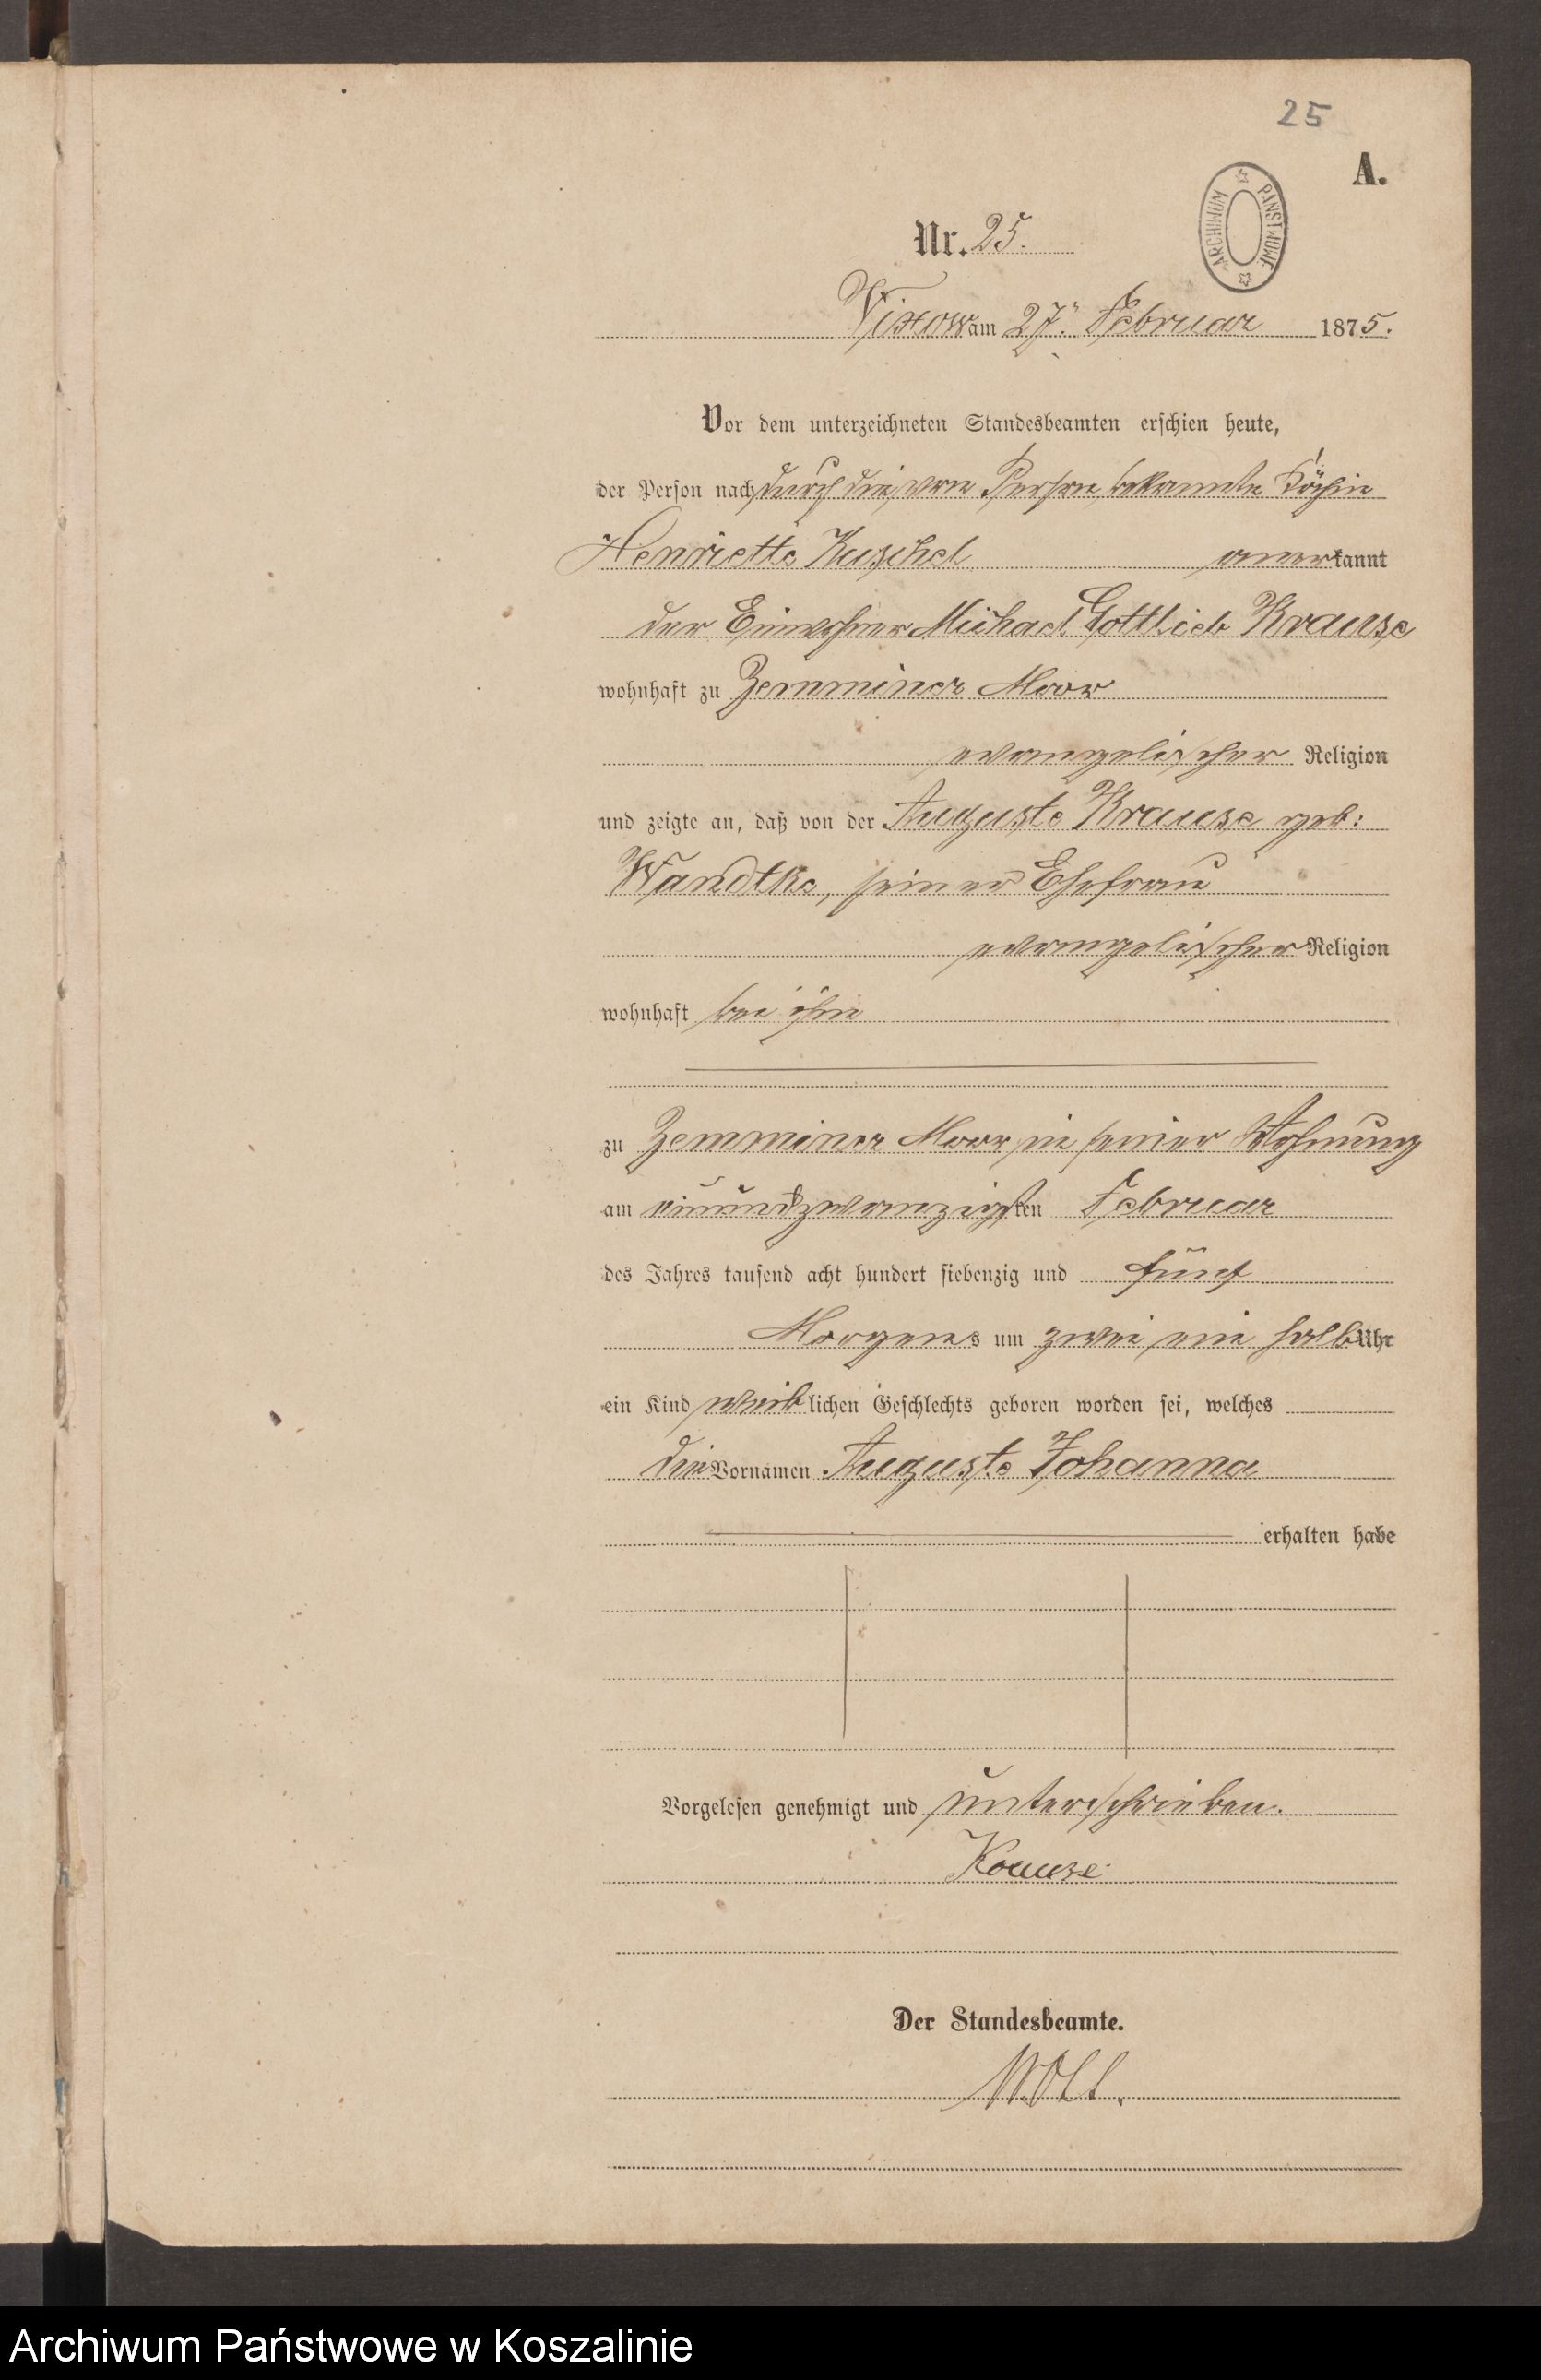 25
A.
ARCHIWUM PAŃSTWOWE
Nr. 25.
Vixow am 27. Februar 1875.
Vor dem unterzeichneten Standesbeamten erschien heute,
der Person nach durch die von Person bekannte Köchin
Henriette Kuschel anerkannt
der Einwohner Michael Gottlieb Krause
wohnhaft zu Zemminer Moor
evangelischer Religion
und zeigte an, daß von der Auguste Krause geb:
Wandtke, seiner Ehefrau
evangelischer Religion
wohnhaft bei ihm
zu Zemminer Moor in seiner Wohnung
am einundzwanzigsten Februar
des Jahres tausend acht hundert siebenzig und fünf
Morgens um zwei ein halb Uhr
ein Kind weiblichen Geschlechts geboren worden sei, welches
die Vornamen Auguste Johanna
erhalten habe
Vorgelesen genehmigt und unterschrieben.
Krause
Der Standesbeamte.
Archiwum Państwowe w Koszalinie